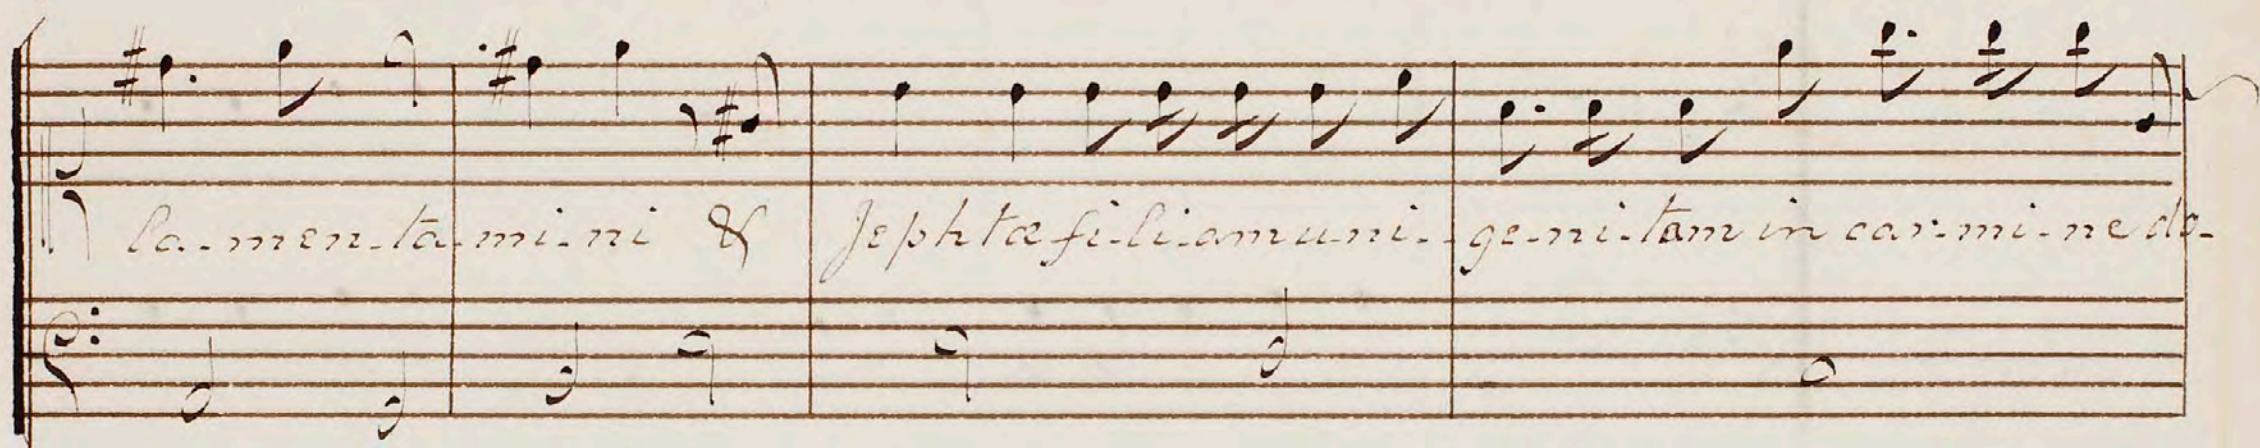 la-men-ta-mi-ni & Jephtæ fi-li-am u-ni-ge-ni-tam in car-mi-ne do-